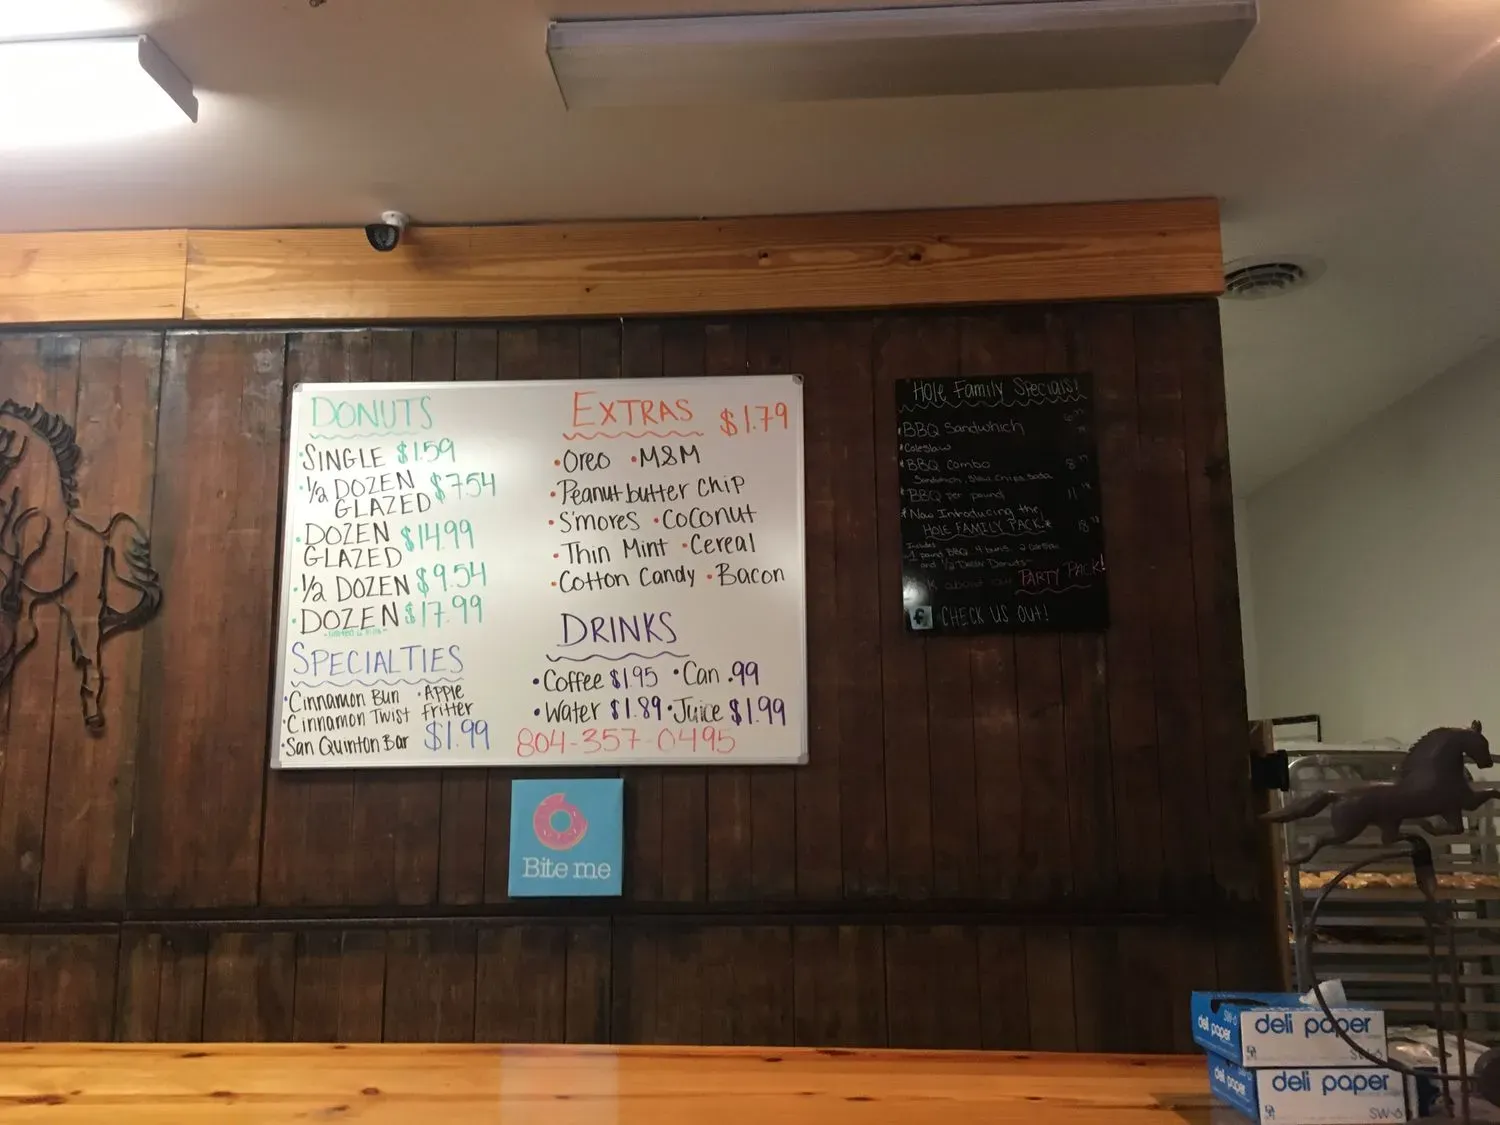 DONUTS
·SINGLE $1.59
·1/2 DOZEN $7.54
GLAZED
·DOZEN $14.99
GLAZED
·1/2 DOZEN $9.54
·DOZEN $17.99
SPECIALTIES
·Cinnamon Bun ·Apple
·Cinnamon Twist fritter
·San Quinton Bar $1.99
EXTRAS $1.79
·Oreo ·M&M
·Peanut butter chip
·S'mores ·Coconut
·Thin Mint ·Cereal
·Cotton Candy ·Bacon
DRINKS
·Coffee $1.95 ·Can .99
·Water $1.89 ·Juice $1.99
804-357-0495
Bite me
Hole Family Specials!
*BBQ Sandwhich
*Coleslaw
*BBQ Combo
Sandwich, Slaw, Chips, Soda
*BBQ per pound
*Now Introducing the
HOLE FAMILY PACK*
Includes
1 pound BBQ 4 buns
and 1/2 Dozen Donuts
about our PARTY PACK!
f CHECK US OUT!
deli paper SW-6
deli paper SW-6
deli paper
deli paper SW-6